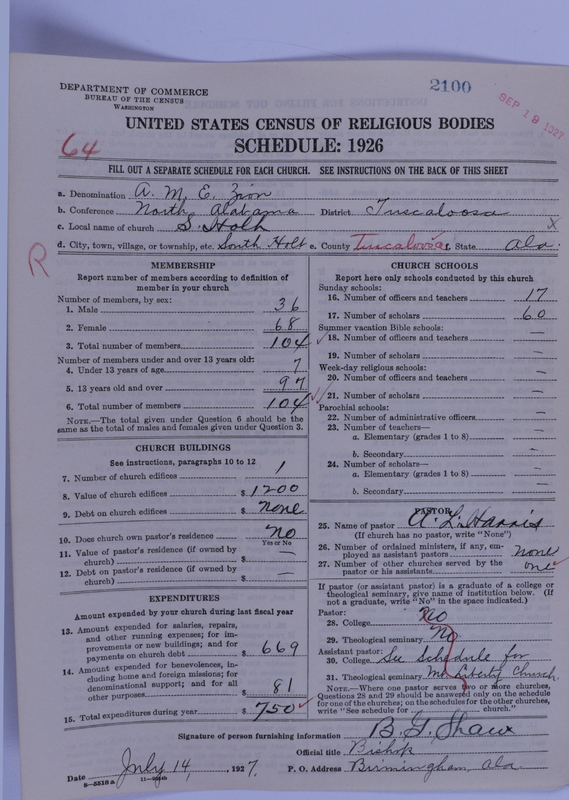 2100
SEP 19 1927
DEPARTMENT OF COMMERCE
BUREAU OF THE CENSUS
WASHINGTON
UNITED STATES CENSUS OF RELIGIOUS BODIES
64
SCHEDULE: 1926
FILL OUT A SEPARATE SCHEDULE FOR EACH CHURCH. SEE INSTRUCTIONS ON THE BACK OF THIS SHEET
a. Denomination A. M. E. Zion
b. Conference North Alabama District Tuscaloosa
c. Local name of church S. Holh X
d. City, town, village, or township, etc. South Holt e. County Tuscaloosa f. State Ala.
R
MEMBERSHIP
Report number of members according to definition of
member in your church
Number of members, by sex:
1. Male 36
2. Female 68
3. Total number of members 104
Number of members under and over 13 years old:
4. Under 13 years of age 7
5. 13 years old and over 97
6. Total number of members 104
NOTE.—The total given under Question 6 should be the
same as the total of males and females given under Question 3.
CHURCH BUILDINGS
See instructions, paragraphs 10 to 12
7. Number of church edifices 1
8. Value of church edifices $1200
9. Debt on church edifices $none
10. Does church own pastor's residence No
Yes or No
11. Value of pastor's residence (if owned by
church) $ —
12. Debt on pastor's residence (if owned by
church) $ —
EXPENDITURES
Amount expended by your church during last fiscal year
13. Amount expended for salaries, repairs,
and other running expenses; for im-
provements or new buildings; and for
payments on church debt $ 669
14. Amount expended for benevolences, in-
cluding home and foreign missions; for
denominational support; and for all
other purposes $ 81
15. Total expenditures during year $750
CHURCH SCHOOLS
Report here only schools conducted by this church
Sunday schools:
16. Number of officers and teachers 17
17. Number of scholars 60
Summer vacation Bible schools:
18. Number of officers and teachers —
19. Number of scholars —
Week-day religious schools:
20. Number of officers and teachers —
21. Number of scholars —
Parochial schools:
22. Number of administrative officers —
23. Number of teachers—
a. Elementary (grades 1 to 8) —
b. Secondary —
24. Number of scholars—
a. Elementary (grades 1 to 8) —
b. Secondary —
PASTOR
25. Name of pastor A. L. Harris
(If church has no pastor, write "None")
26. Number of ordained ministers, if any, em-
ployed as assistant pastors none
27. Number of other churches served by the
pastor or his assistants one
If pastor (or assistant pastor) is a graduate of a college or
theological seminary, give name of institution below. (If
not a graduate, write "No" in the space indicated.)
Pastor:
28. College No
29. Theological seminary No
Assistant pastor:
30. College See Schedule for
31. Theological seminary Mt Liberty Church.
NOTE.—Where one pastor serves two or more churches,
Questions 28 and 29 should be answered only on the schedule
for one of the churches; on the schedules for the other churches,
write "See schedule for ____ church."
Signature of person furnishing information B. G. Shaw
Official title Bishop
Date July 14, 1927. P. O. Address Birmingham, Ala
8—5518 a